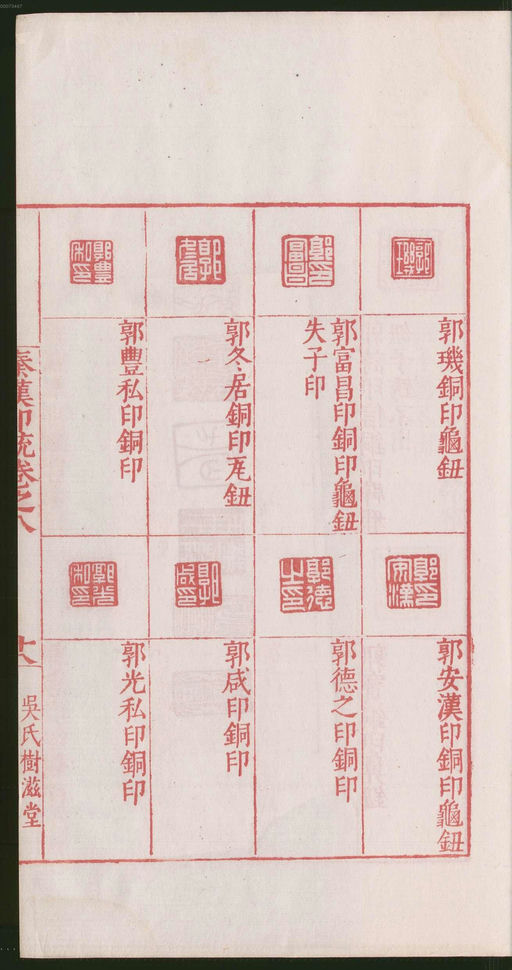 郭璣銅印龜鈕
郭富昌印銅印龜鈕
失子印
郭冬居銅印瓦鈕
郭豐私印銅印
郭安漢印銅印龜鈕
郭德之印銅印
郭咸印銅印
郭光私印銅印
秦漢印統卷之八
吳氏樹滋堂
00073467